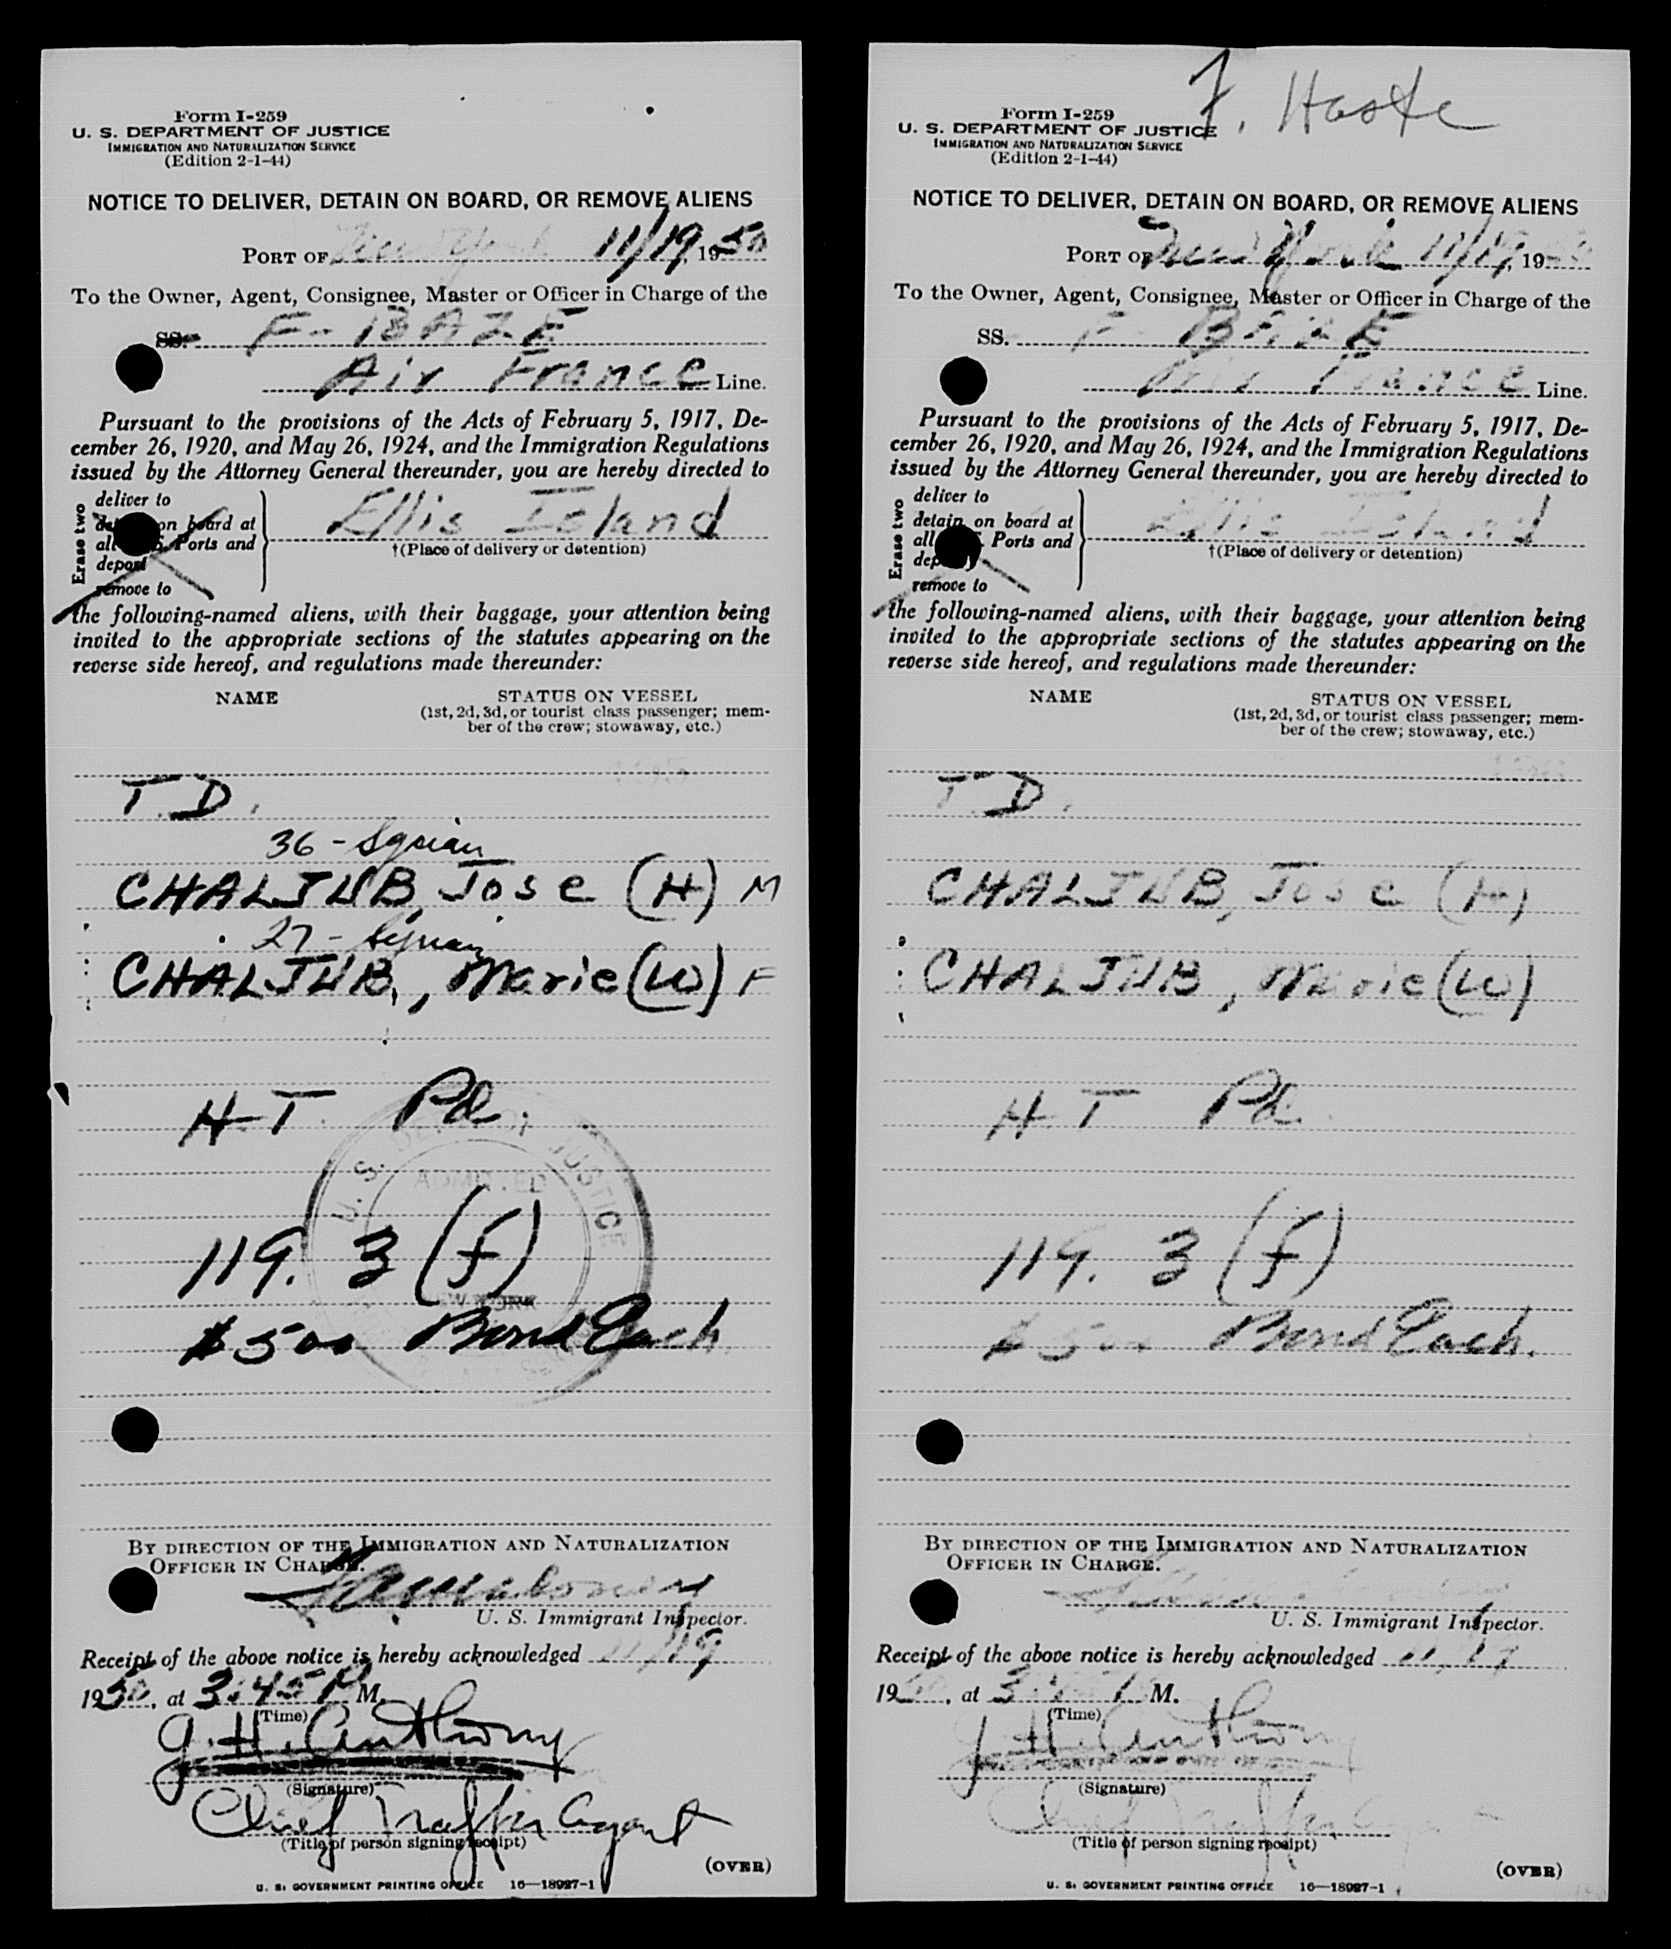 Form I-259
U. S. DEPARTMENT OF JUSTICE
IMMIGRATION AND NATURALIZATION SERVICE
(Edition 2-1-44)
NOTICE TO DELIVER, DETAIN ON BOARD, OR REMOVE ALIENS
PORT OF New York 11/19 1950
To the Owner, Agent, Consignee, Master or Officer in Charge of the
SS. F-BAZE
Air France Line.
Pursuant to the provisions of the Acts of February 5, 1917, De-
cember 26, 1920, and May 26, 1924, and the Immigration Regulations
issued by the Attorney General thereunder, you are hereby directed to
Erase two
deliver to
on board at
Ports and
deport
remove to
Ellis Island
†(Place of delivery or detention)
the following-named aliens, with their baggage, your attention being
invited to the appropriate sections of the statutes appearing on the
reverse side hereof, and regulations made thereunder:
NAME
STATUS ON VESSEL
(1st, 2d, 3d, or tourist class passenger; mem-
ber of the crew; stowaway, etc.)
T.D.
36 - Syrian
CHALJUB, Jose (H) M
27 - Syrian
CHALJUB, Marie (W) F
H.T. Pd.
119. 3 (f)
$500 Bond Each
U. S. DEPT. OF JUSTICE
ADMITTED
NEW YORK
BY DIRECTION OF THE IMMIGRATION AND NATURALIZATION
OFFICER IN CHARGE.
U. S. Immigrant Inspector.
Receipt of the above notice is hereby acknowledged 11/19
1950, at 3:45 P M.
(Time)
J. H. Anthony
(Signature)
Chief Traffic Agent
(Title of person signing receipt)
(OVER)
U. S. GOVERNMENT PRINTING OFFICE 16—18987-1
F. Haste
Form I-259
U. S. DEPARTMENT OF JUSTICE
IMMIGRATION AND NATURALIZATION SERVICE
(Edition 2-1-44)
NOTICE TO DELIVER, DETAIN ON BOARD, OR REMOVE ALIENS
PORT OF New York 11/19, 1950
To the Owner, Agent, Consignee, Master or Officer in Charge of the
SS. F BAZE
Air France Line.
Pursuant to the provisions of the Acts of February 5, 1917, De-
cember 26, 1920, and May 26, 1924, and the Immigration Regulations
issued by the Attorney General thereunder, you are hereby directed to
Erase two
deliver to
detain on board at
all Ports and
remove to
Ellis Island
†(Place of delivery or detention)
the following-named aliens, with their baggage, your attention being
invited to the appropriate sections of the statutes appearing on the
reverse side hereof, and regulations made thereunder:
NAME
STATUS ON VESSEL
(1st, 2d, 3d, or tourist class passenger; mem-
ber of the crew; stowaway, etc.)
T.D.
CHALJUB, Jose (H)
CHALJUB, Marie (W)
H.T Pd.
119. 3 (f)
$500 Bond Each.
BY DIRECTION OF THE IMMIGRATION AND NATURALIZATION
OFFICER IN CHARGE.
U. S. Immigrant Inspector.
Receipt of the above notice is hereby acknowledged 11/19
1950, at 3:45 P M.
(Time)
J. H. Anthony
(Signature)
Chief Traffic Agent
(Title of person signing receipt)
(OVER)
U. S. GOVERNMENT PRINTING OFFICE 16—18987-1